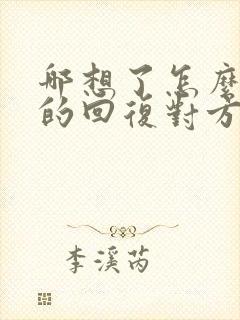 那想了怎麼
的回復對方
李溪芮